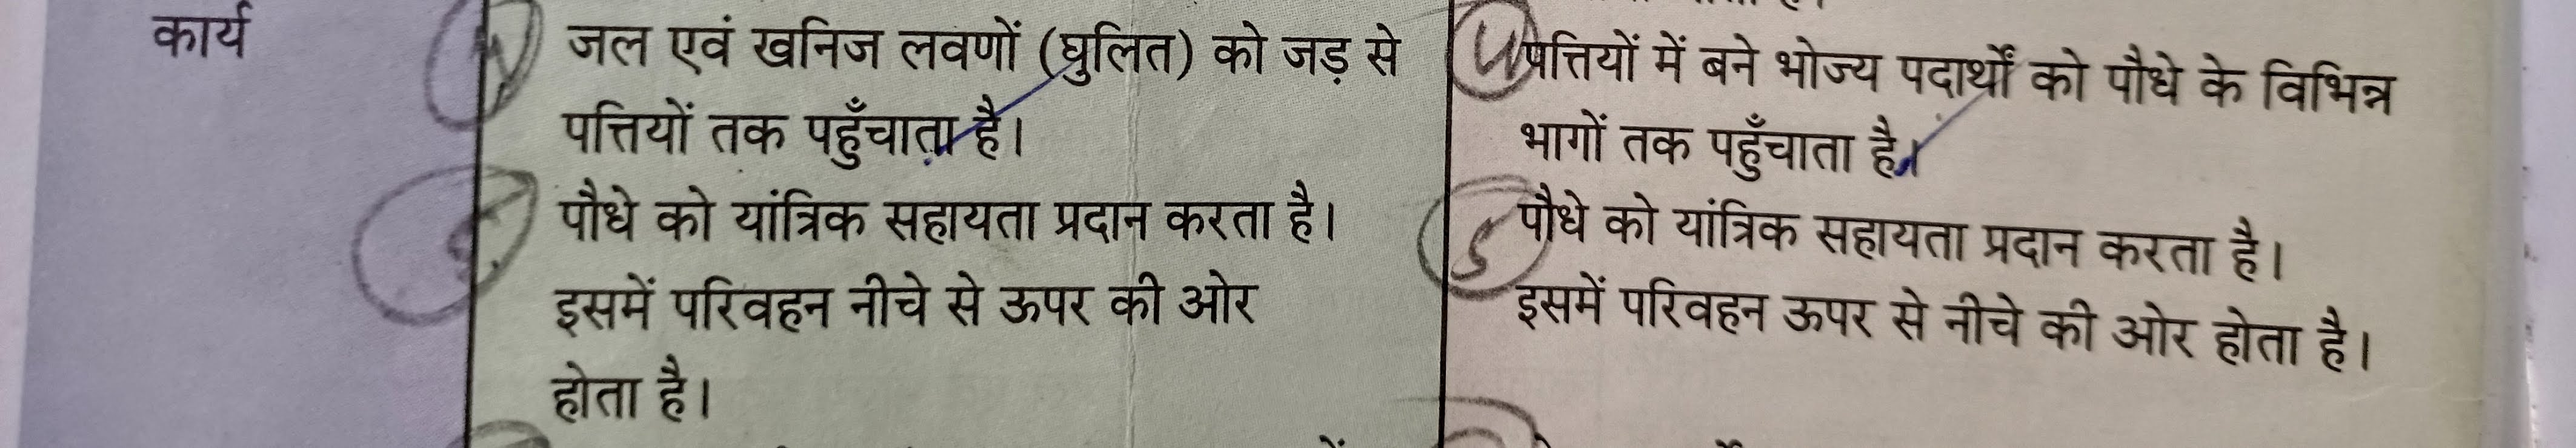 कार्य
जल एवं खनिज लवणों (घुलित) को जड़ से
पत्तियों तक पहुँचाता है।
पौधे को यांत्रिक सहायता प्रदान करता है।
इसमें परिवहन नीचे से ऊपर की ओर
होता है।
4
पत्तियों में बने भोज्य पदार्थों को पौधे के विभिन्न
भागों तक पहुँचाता है।
5
पौधे को यांत्रिक सहायता प्रदान करता है।
इसमें परिवहन ऊपर से नीचे की ओर होता है।